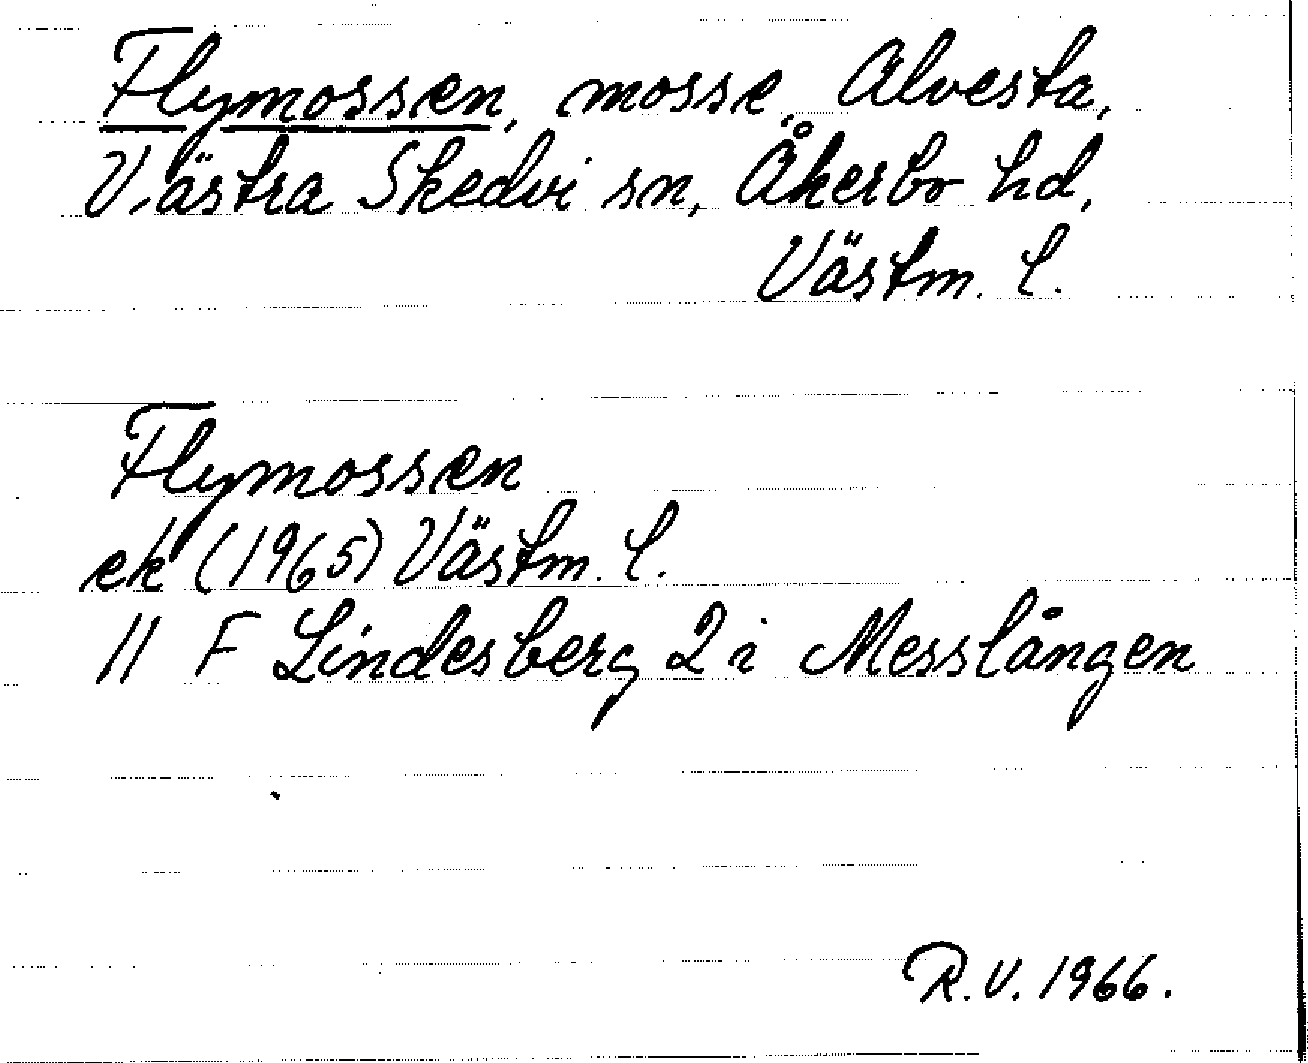 Flymossen, mosse, Alvesta,
Västra Skedvi sn, Åkerbo hd,
Västm. l.
Flymossen
ek (1965) Västm. l.
11 F Lindesberg 2 i Messlången
R.V. 1966.